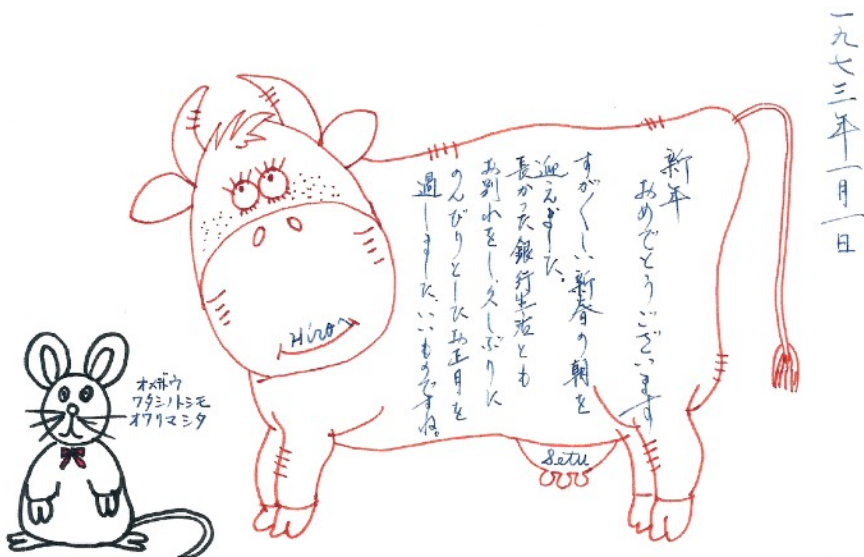 一九七三年一月一日
新年
おめでとうございます
すがくしい新春の朝を
迎えました。
長かった銀行生活とも
お別れをし久しぶりに
のんびりとしたお正月を
過しました。いいものですね。
Hiro
Setu
オメデトウ
ワタシノトシモ
オワリマシタ